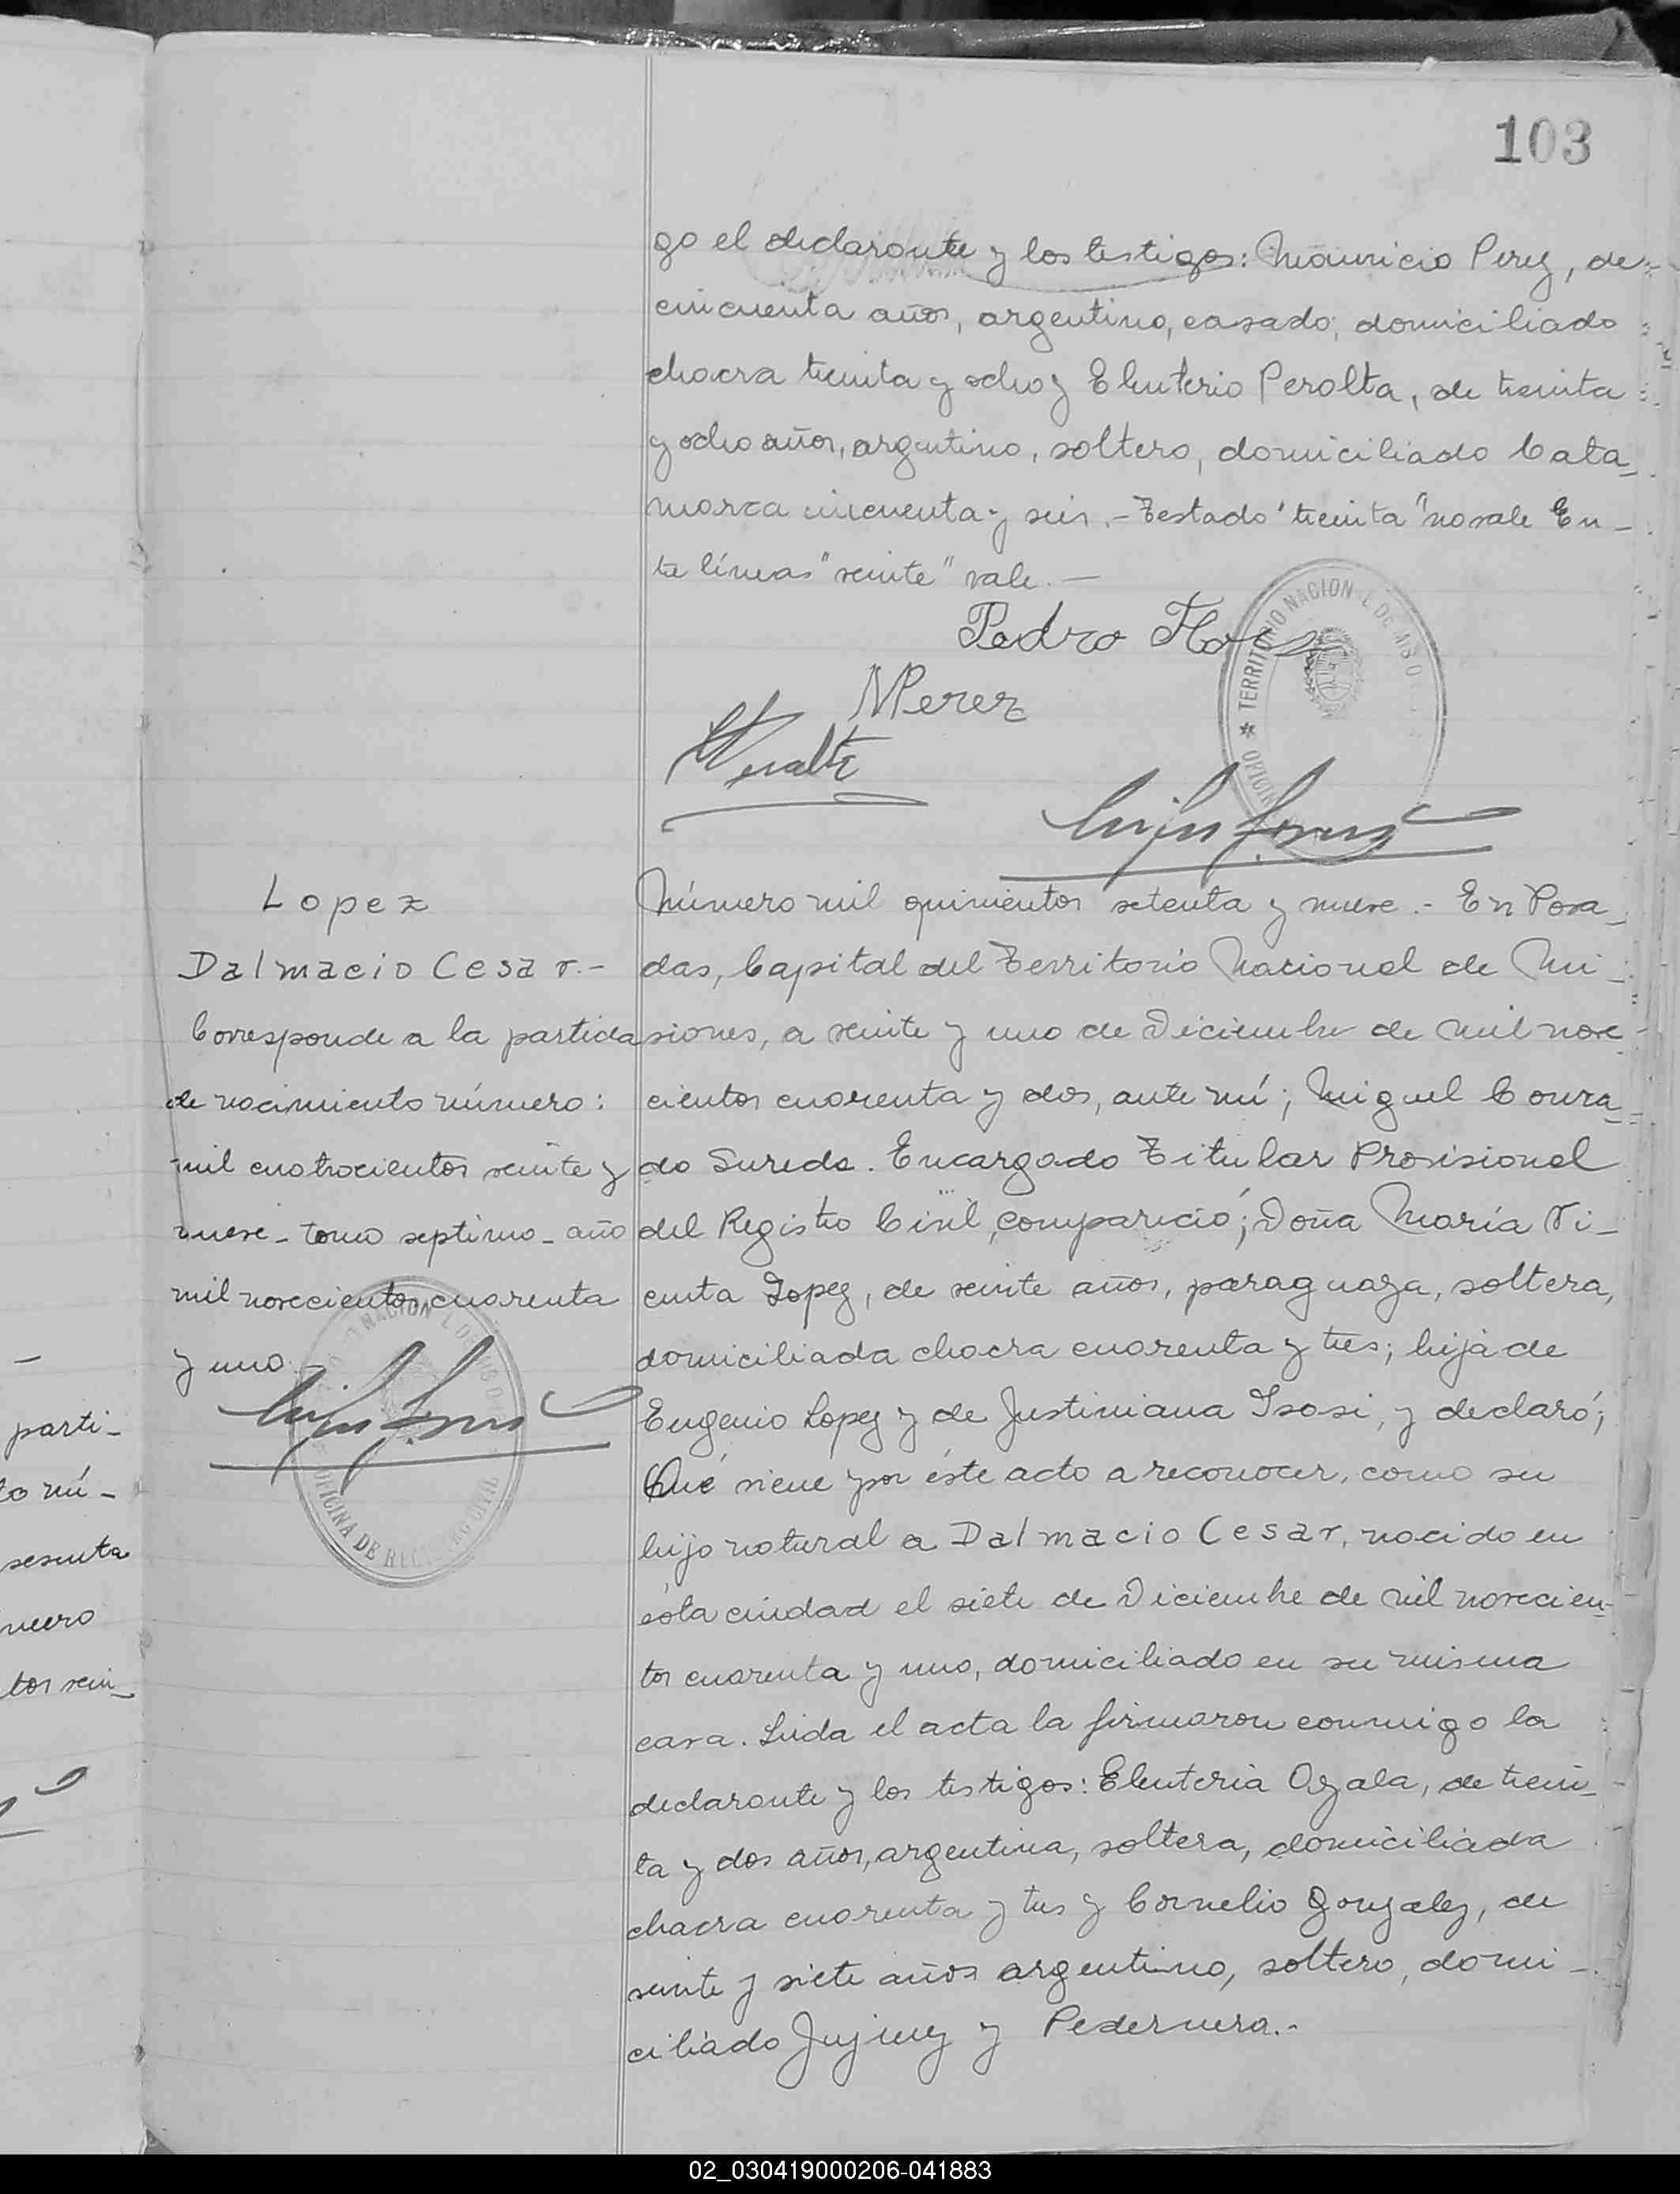 103
go el declarante y los testigos: Mauricio Perez, de
cincuenta años, argentino, casado, domiciliado
chacra treinta y ocho y Eleuterio Peralta, de treinta
y ocho años, argentino, soltero, domiciliado Cata_
marca cincuenta y seis.- Testado "treinta" no vale En_
tre líneas "veinte" vale.—
Pedro
MPerez
Peralta
TERRITORIO NACIONAL DE MISIO
Lopez
Dalmacio Cesar.-
Corresponde a la partida
de nacimiento número:
mil cuatrocientos veinte y
nueve_ tomo septimo_ año
mil novecientos cuarenta
y uno.-
NACIONAL DE MISIO
OFICINA DE REGISTRO CIVIL
Número mil quinientos setenta y nueve.- En Posa_
das, Capital del Territorio Nacional de Mi_
siones, a veinte y uno de Diciembre de mil nove_
cientos cuarenta y dos, ante mí; Miguel Conra_
do Sureda. Encargado Titular Provisional
del Registro Civil, compareció; Doña María Vi_
centa Lopez, de veinte años, paraguaya, soltera,
domiciliada chacra cuarenta y tres; hija de
Eugenio Lopez y de Justiniana Isasi, y declaró;
Qué viene por éste acto a reconocer, como su
hijo natural a Dalmacio Cesar, nacido en
ésta ciudad el siete de Diciembre de mil novecien_
tos cuarenta y uno, domiciliado en su misma
casa. Leida el acta la firmaron conmigo la
declarante y los testigos: Eleuteria Ayala, de trein_
ta y dos años, argentina, soltera, domiciliada
chacra cuarenta y tres y Cornelio Gonzalez, de
veinte y siete años argentino, soltero, domi_
ciliado Jujuy y Pedernera.-
parti_
to nú_
sesenta
mero
tos vein_
02_030419000206-041883